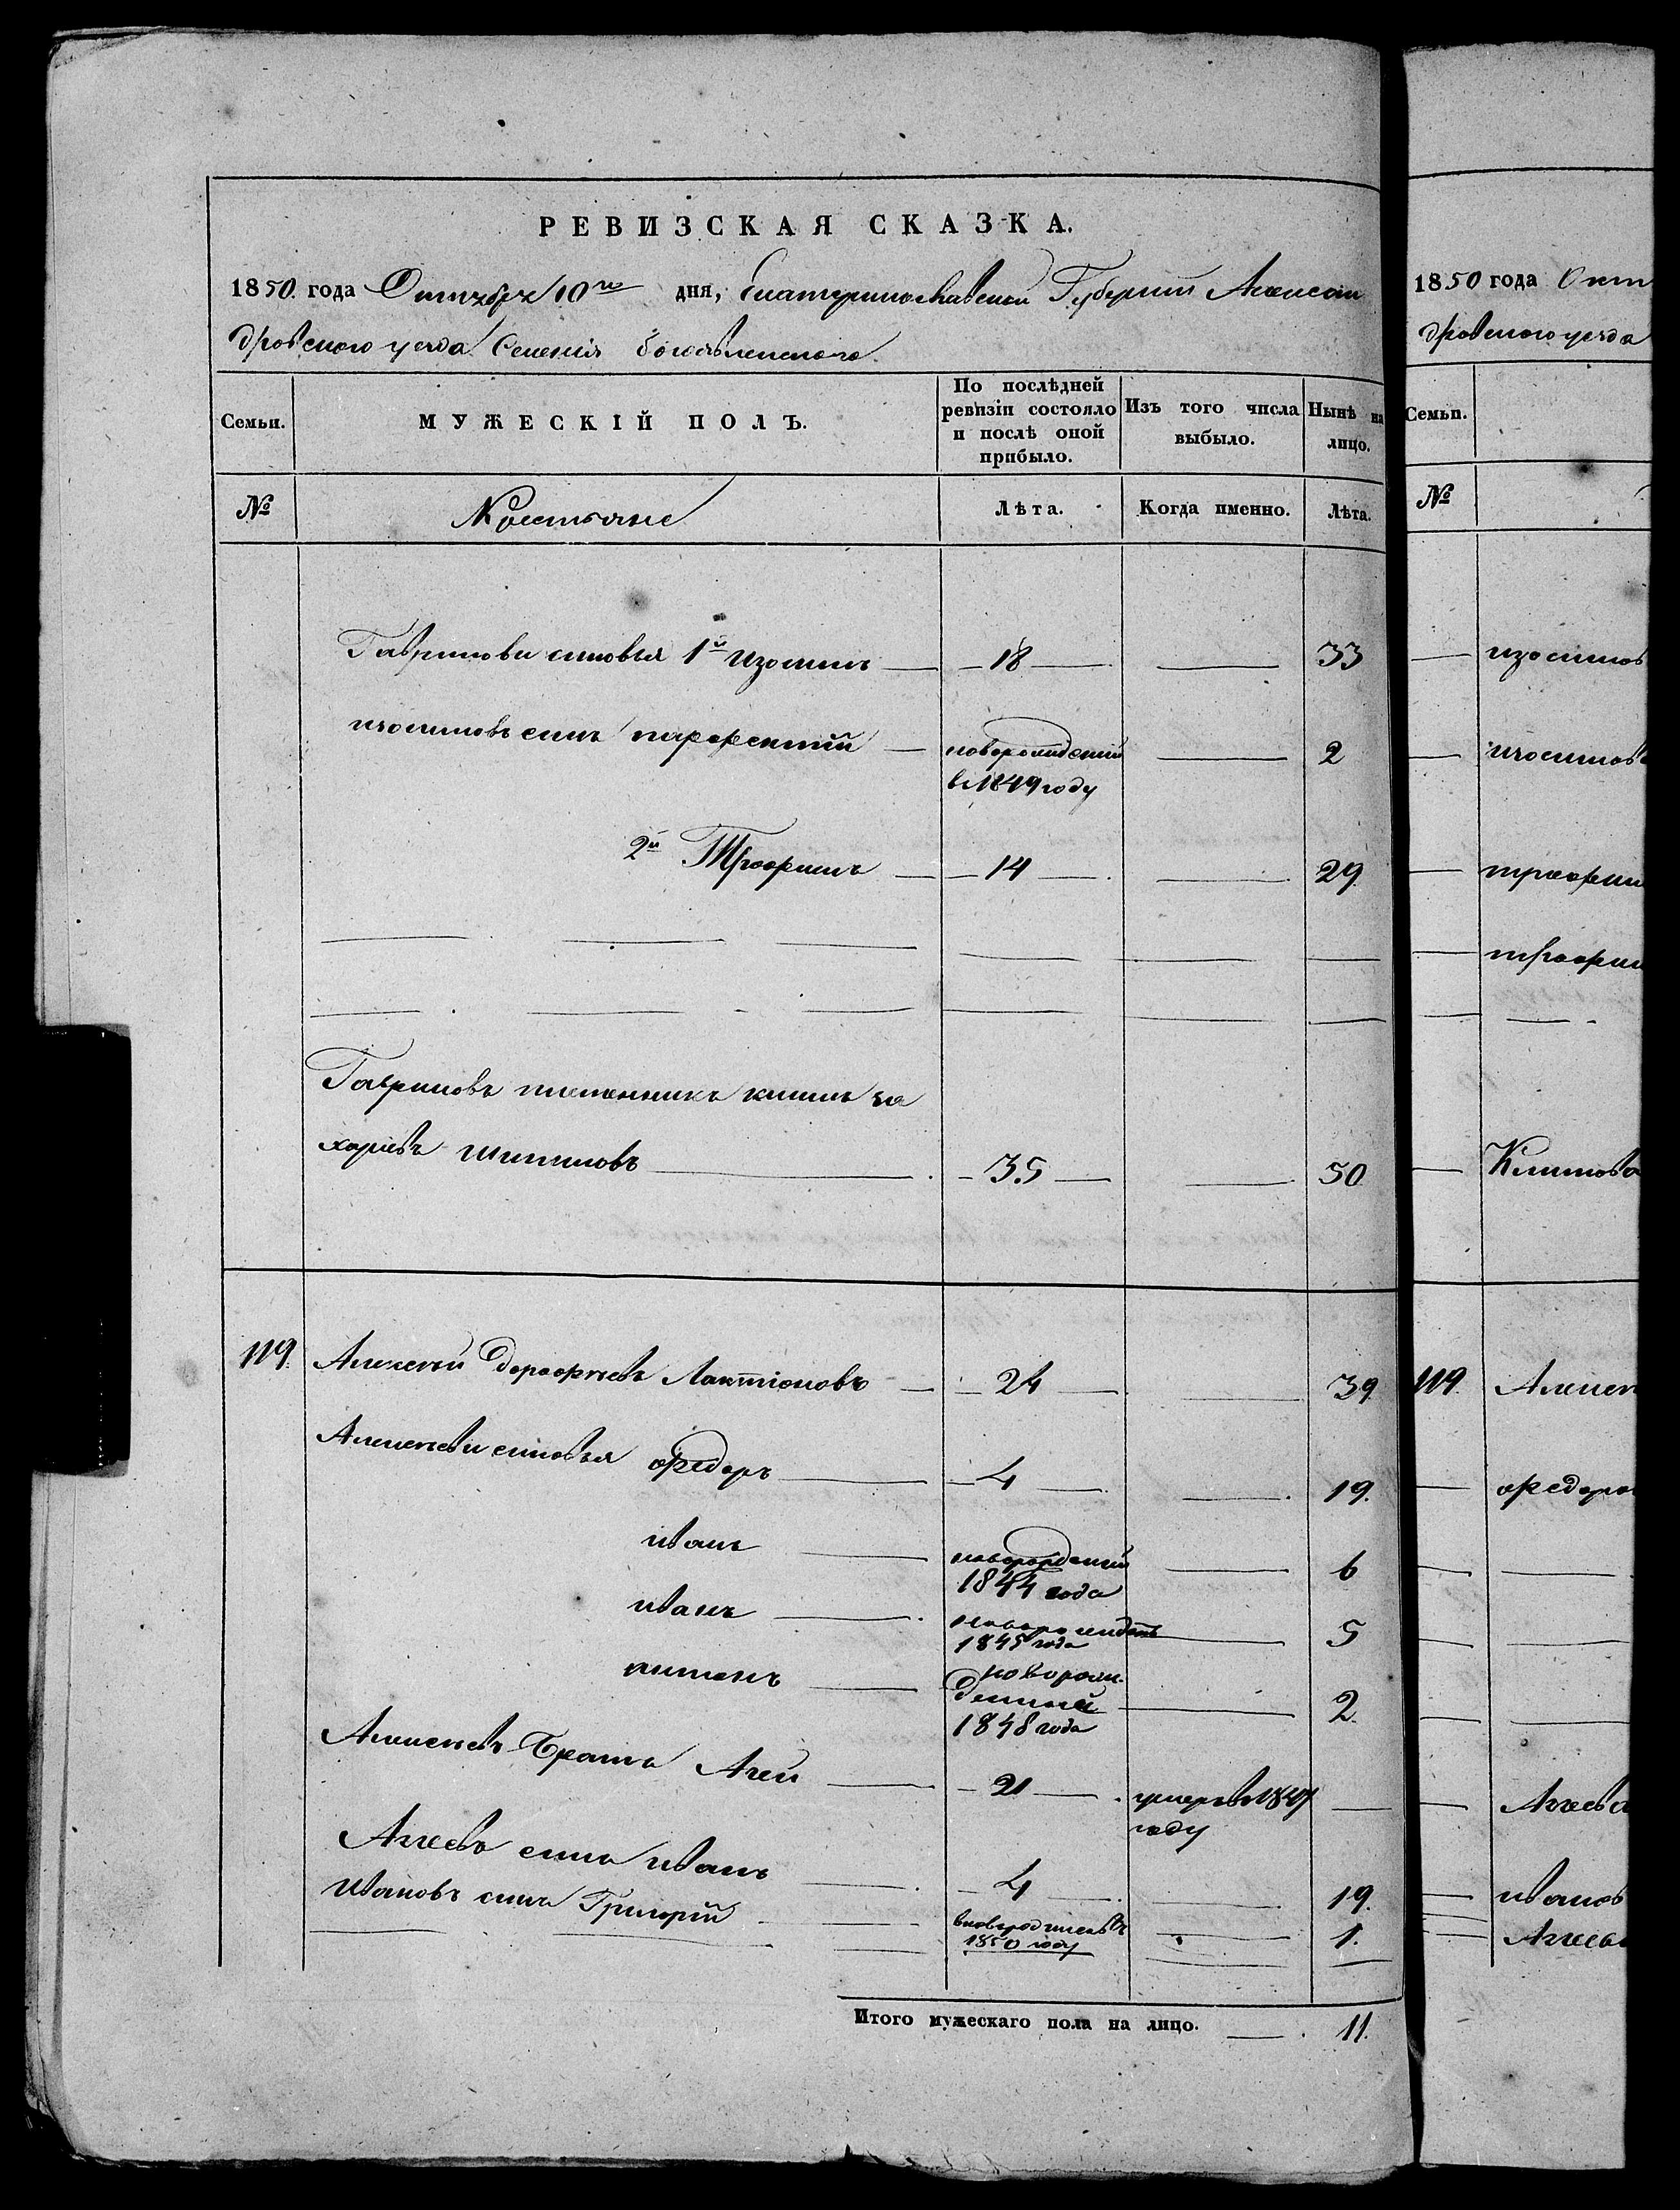 РЕВИЗСКАЯ СКАЗКА.
1850 года Октября 10го дня, Екатеринославской Губернии Алексан
дровского уезда Селения Богоявленского.
Семьи. МУЖЕСКІЙ ПОЛЪ. По послѣдней ревизіи состояло и послѣ оной прибыло. Изъ того числа выбыло. Нынѣ на лицо.
№ Крестьяне Лѣта. Когда именно. Лѣта.
Гавриловы сыновья 1й Изосимъ 18 33
изосимовъ сынъ парфентій новорожденый 2
в 1849 году
2й Трофимъ 14 29
Гавриловъ племянникъ климъ за
харіевъ шипиловъ 35 50
119. Алексѣй Дорофѣевъ Лактіоновъ 24 39
Алексѣевы сыновья федоръ 4 19.
иванъ новорожденый 6
1844 года
иванъ новорожденъ 5
1845 года
новорож-
денный 2.
1848 года
Алексѣевъ Братъ Агей 21 умеръ в 1847
году
Агѣевъ сынъ иванъ 4 19.
Ивановъ сынъ Григорій 1.
1850 году
Итого мужескаго пола на лицо. 11.
1850 года Окт
дровского уезда
Семьи.
№
изосимов
изосимов
трофим
трофим
Климова
119. Алексе
федоро
Агеева
иванов
Агеев